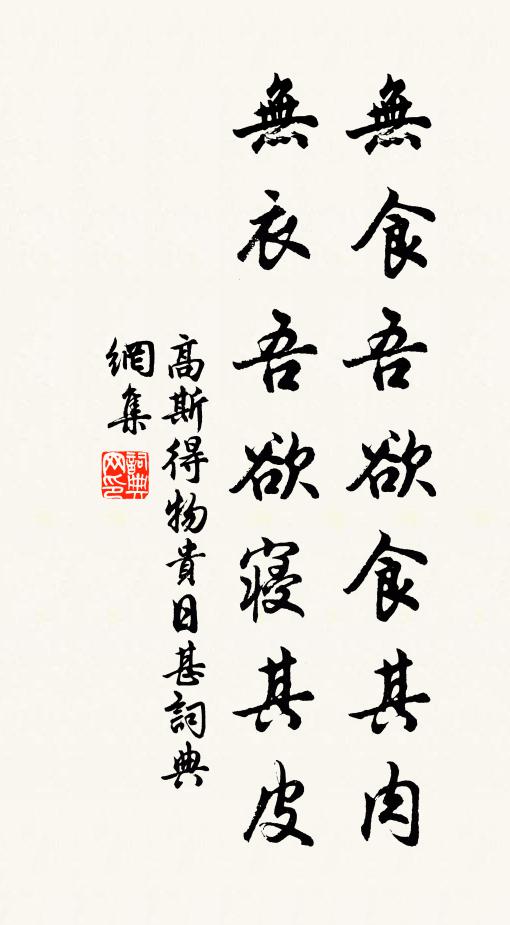 無食吾欲食其肉
無衣吾欲寝其皮
高斯得物貴日甚詞典
網集
詞典
网印